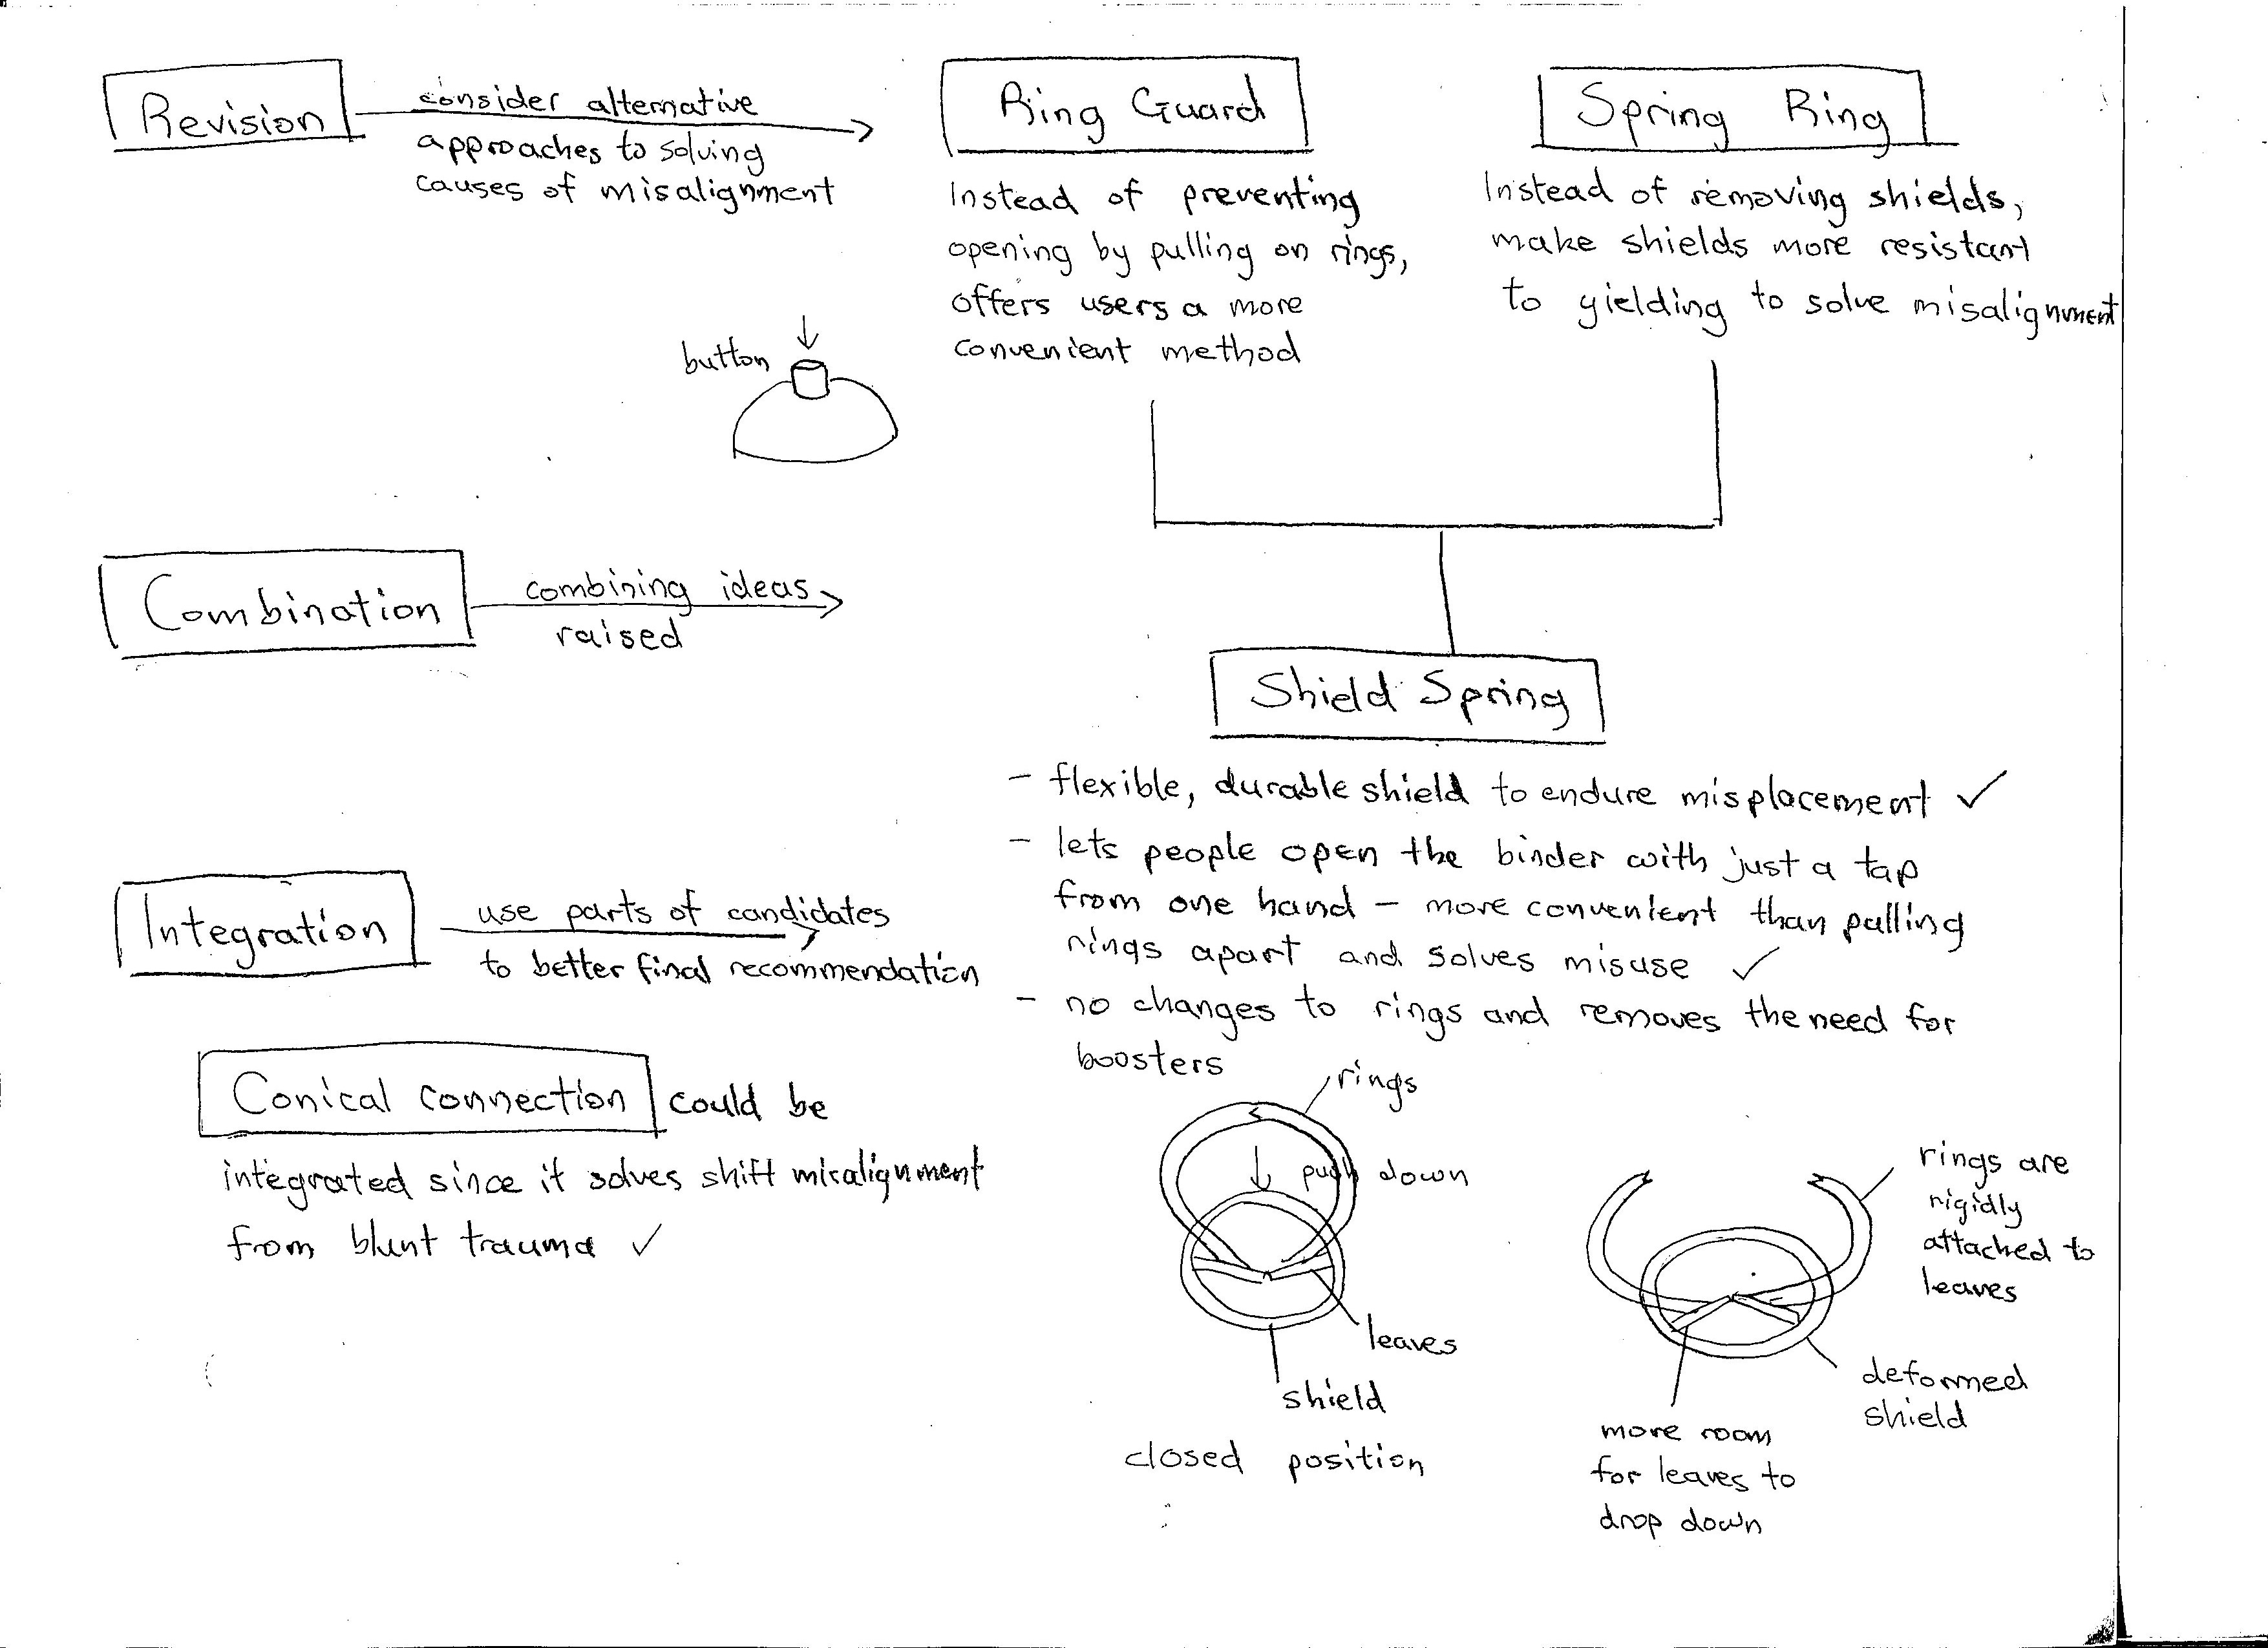 Revision
consider alternative
approaches to solving
causes of misalignment
Ring Guard
Instead of preventing
opening by pulling on rings,
offers users a more
convenient method
Spring Ring
Instead of removing shields,
make shields more resistant
to yielding to solve misalignment
button
Combination
combining ideas
raised
Shield Spring
- flexible, durable shield to endure misplacement ✓
- lets people open the binder with just a tap
from one hand - more convenient than pulling
rings apart and solves misuse ✓
- no changes to rings and removes the need for
boosters
Integration
use parts of candidates
to better final recommendation
Conical connection could be
integrated since it solves shift misalignment
from blunt trauma ✓
rings
push down
leaves
shield
closed position
rings are
rigidly
attached to
leaves
deformed
shield
more room
for leaves to
drop down